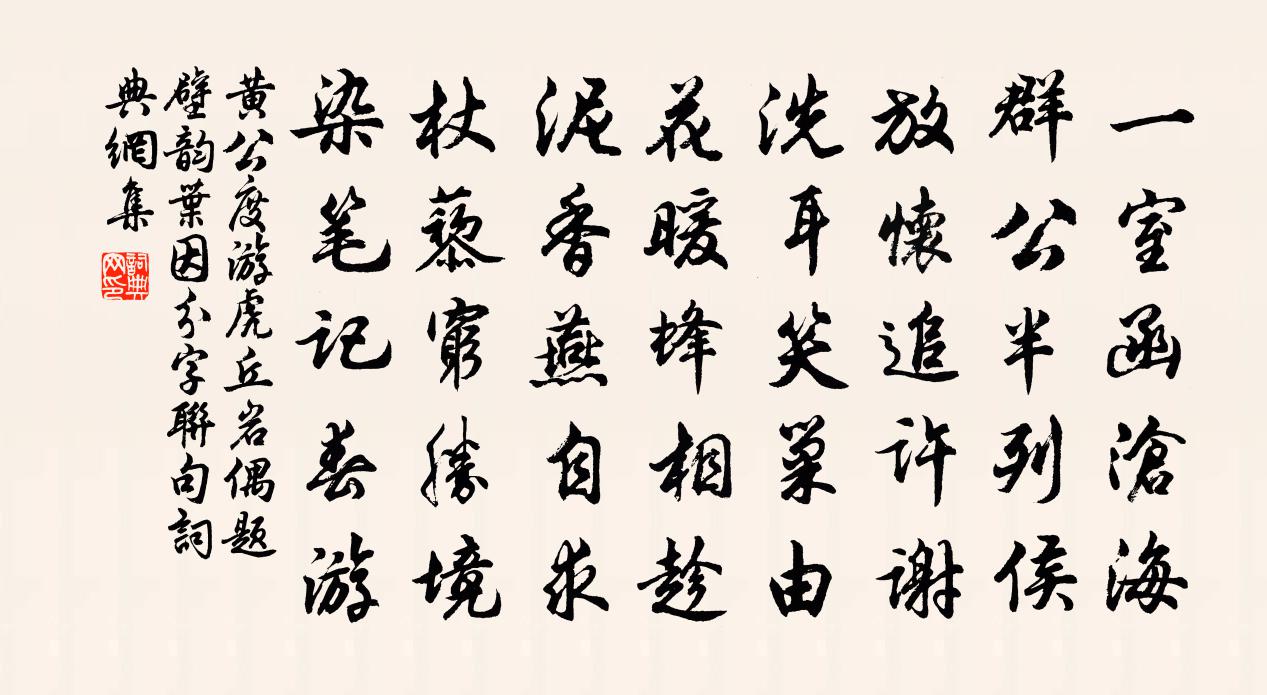 一室函滄海
群公半列侯
放懷追許謝
洗耳笑巢由
花暖蜂相趁
泥香燕自求
杖藜窮勝境
染笔记春游
黄公度游虎丘岩偶题
壁韵葉因分字聯句詞
典網集
詞典网印